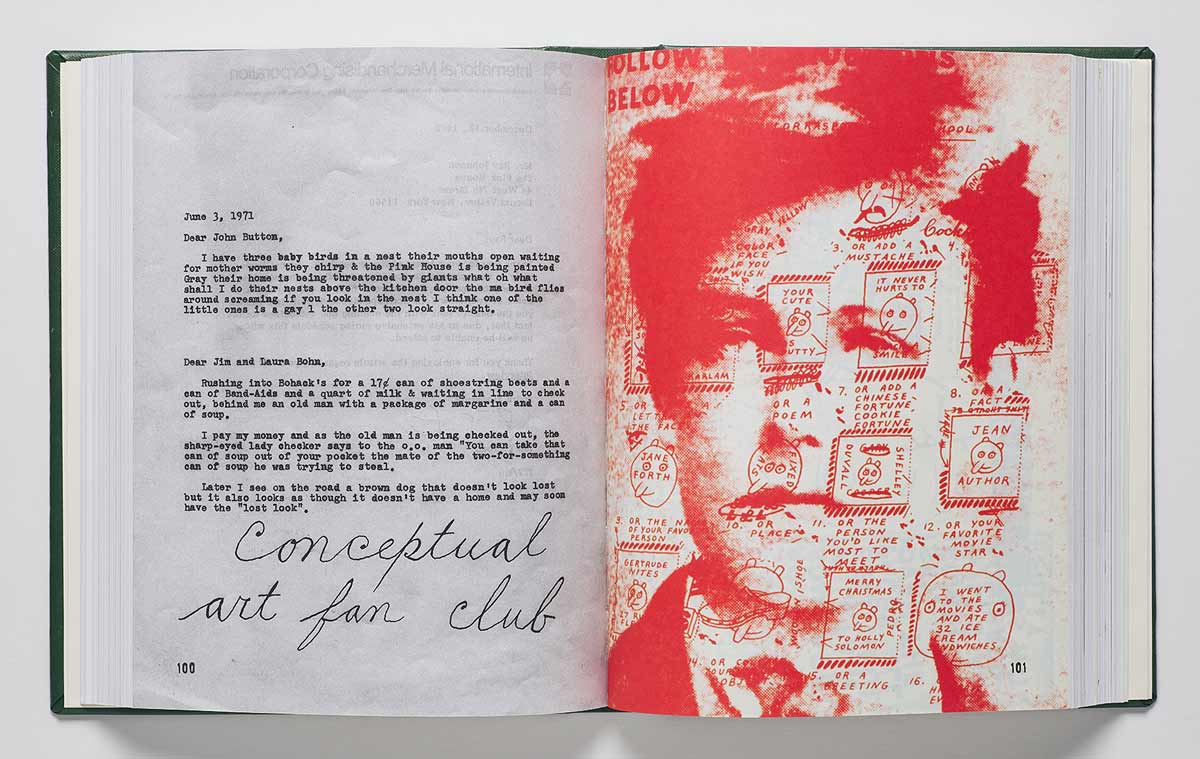 June 3, 1971
Dear John Button,
I have three baby birds in a nest their mouths open waiting
for mother worms they chirp & the Pink House is being painted
Gray their home is being threatened by giants what oh what
shall I do their nests above the kitchen door the ma bird flies
around screaming if you look in the nest I think one of the
little ones is a gay 1 the other two look straight.
Dear Jim and Laura Bohn,
Rushing into Bohack's for a 17¢ can of shoestring beets and a
can of Band-Aids and a quart of milk & waiting in line to check
out, behind me an old man with a package of margarine and a can
of soup.
I pay my money and as the old man is being checked out, the
sharp-eyed lady checker says to the o.o. man "You can take that
can of soup out of your pocket the mate of the two-for-something
can of soup he was trying to steal.
Later I see on the road a brown dog that doesn't look lost
but it also looks as though it doesn't have a home and may soon
have the "lost look".
Conceptual
art fan club
100
FOLLOW
BELOW
GRAY
COLOR
FACE
IF YOU
WISH
3. OR ADD A
MUSTACHE
4.
YOUR
CUTE
IT NEVER
HURTS TO
SMILE
5. OR
THE FACE
OR A
POEM
7. OR ADD A
CHINESE
FORTUNE
COOKIE
FORTUNE
8. OR A
FACT
JANE
FORTH
DUVALL
SHELLEY
JEAN
AUTHOR
OR THE
OF YOUR
PERSON
10. OR
PLACE
11. OR THE
PERSON
YOU'D LIKE
MOST TO
MEET
12. OR YOUR
FAVORITE
MOVIE
STAR
GERTRUDE
NITES
MERRY
CHRISTMAS
TO HOLLY
SOLOMON
PEDRO
I WENT
TO THE
MOVIES
AND ATE
32 ICE
CREAM
SANDWICHES
15. OR A
GREETING
16.
101